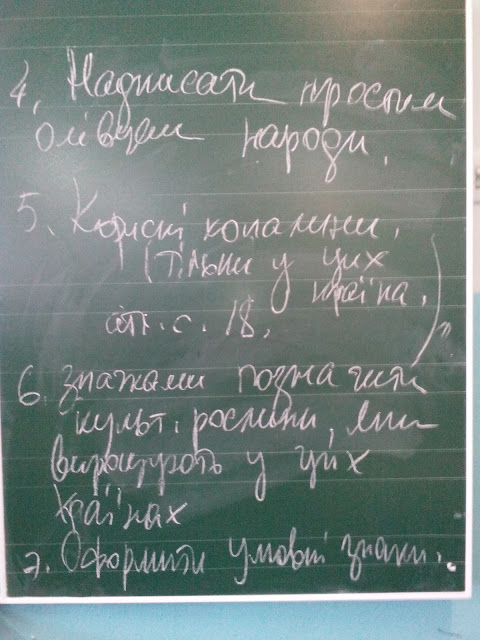 4. Надписати простим
олівцем народи.
5. Корисні копалини.
(тільки у цих
країна.
атл. с. 18.
6. Значками позначити
культ. рослини, які
виростують у цих
країнах
7. Оформити умовні знаки.